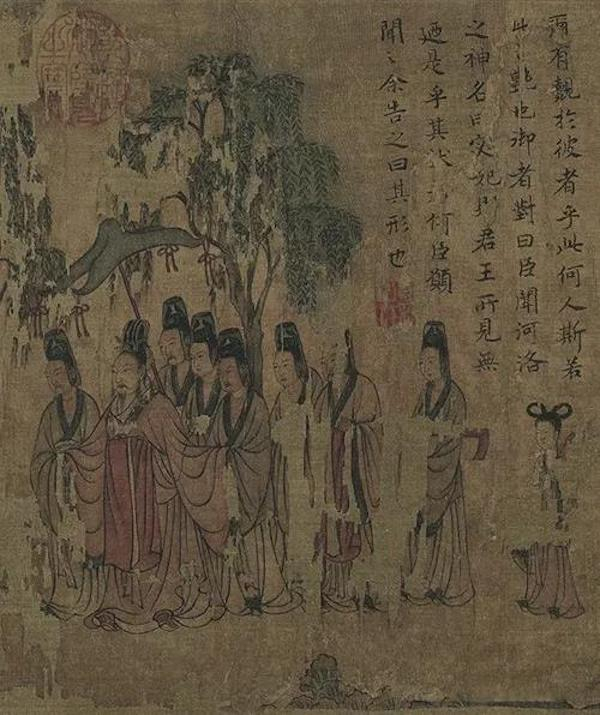 爾有覿於彼者乎此何人斯若
此之艷也御者對曰臣聞河洛
之神名曰宓妃則君王所見無
廼是乎其狀何臣願
聞之余告之曰其形也